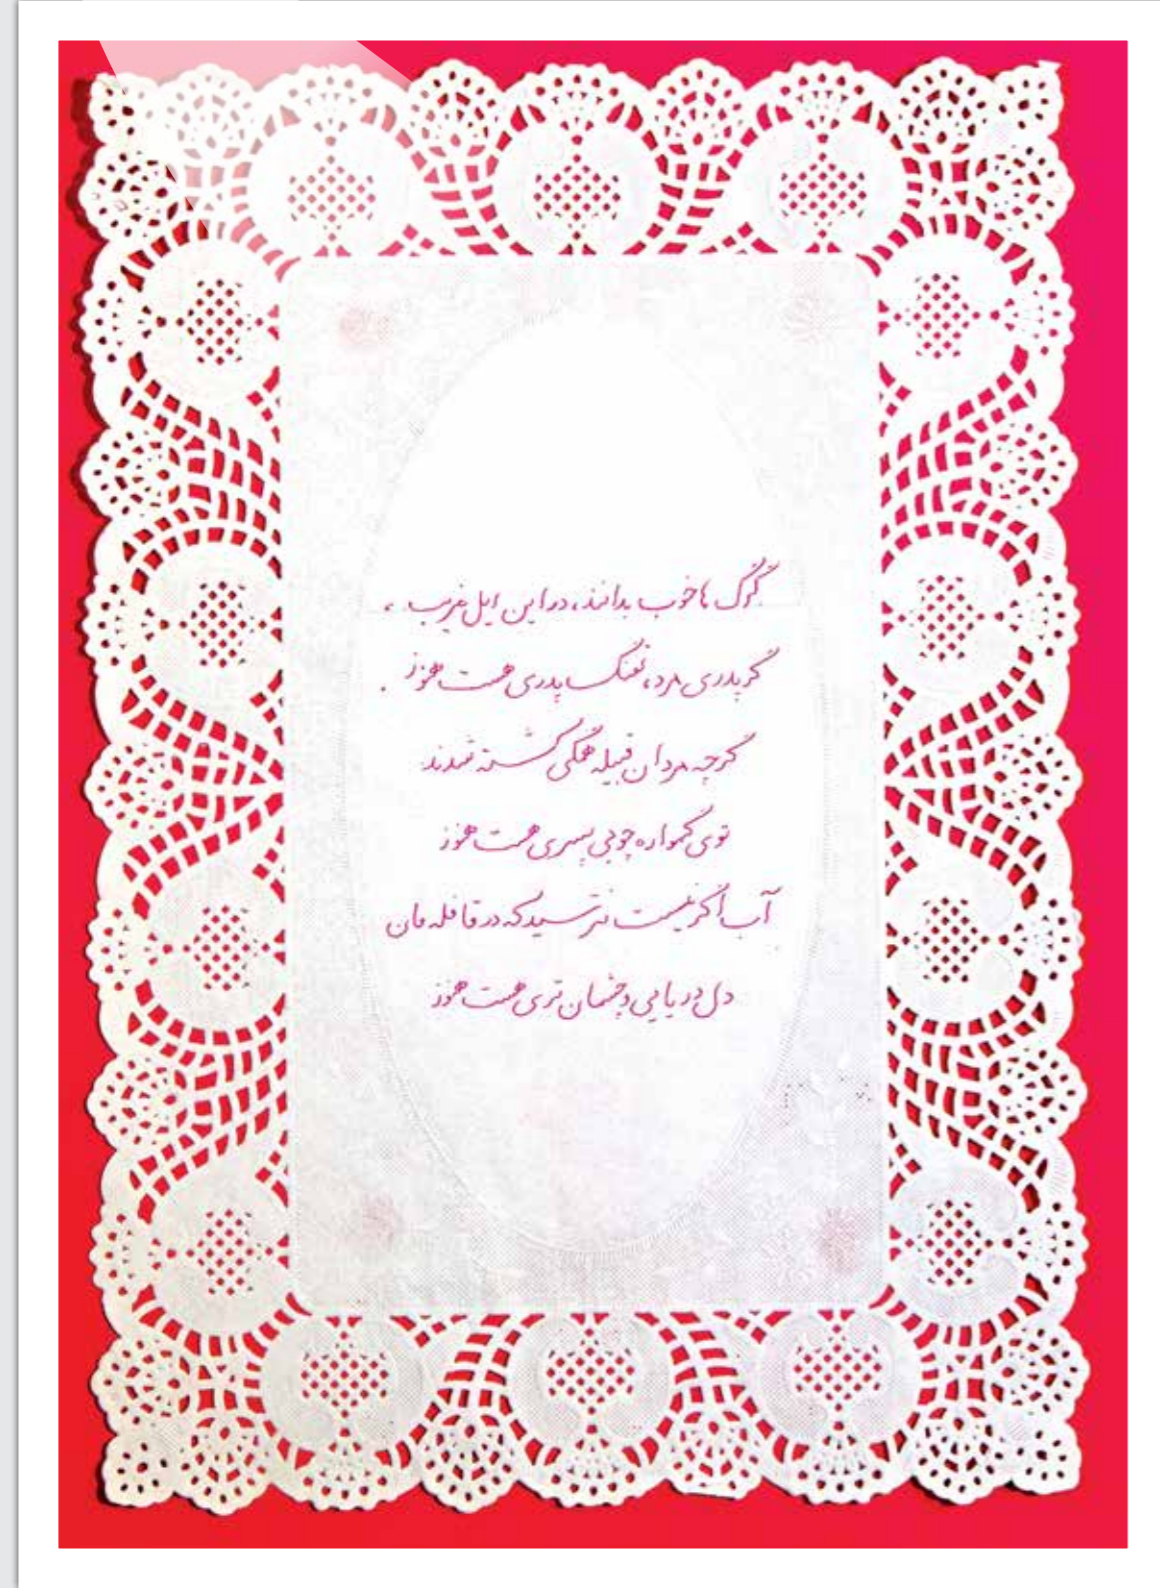 گرگ ها خوب بدانند، در این ایل غریب،
گر پدری مرد، تفنگ پدری هست هنوز.
گرچه مردان قبیله همگی کشته شدند
توی گهواره چوبی پسری هست هنوز
آب اگر نیست نترسید که در قافله مان
دل دریایی و چشمان تری هست هنوز